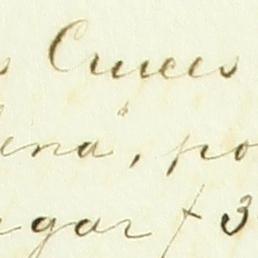 s Cruces
lena, po
egar f 3